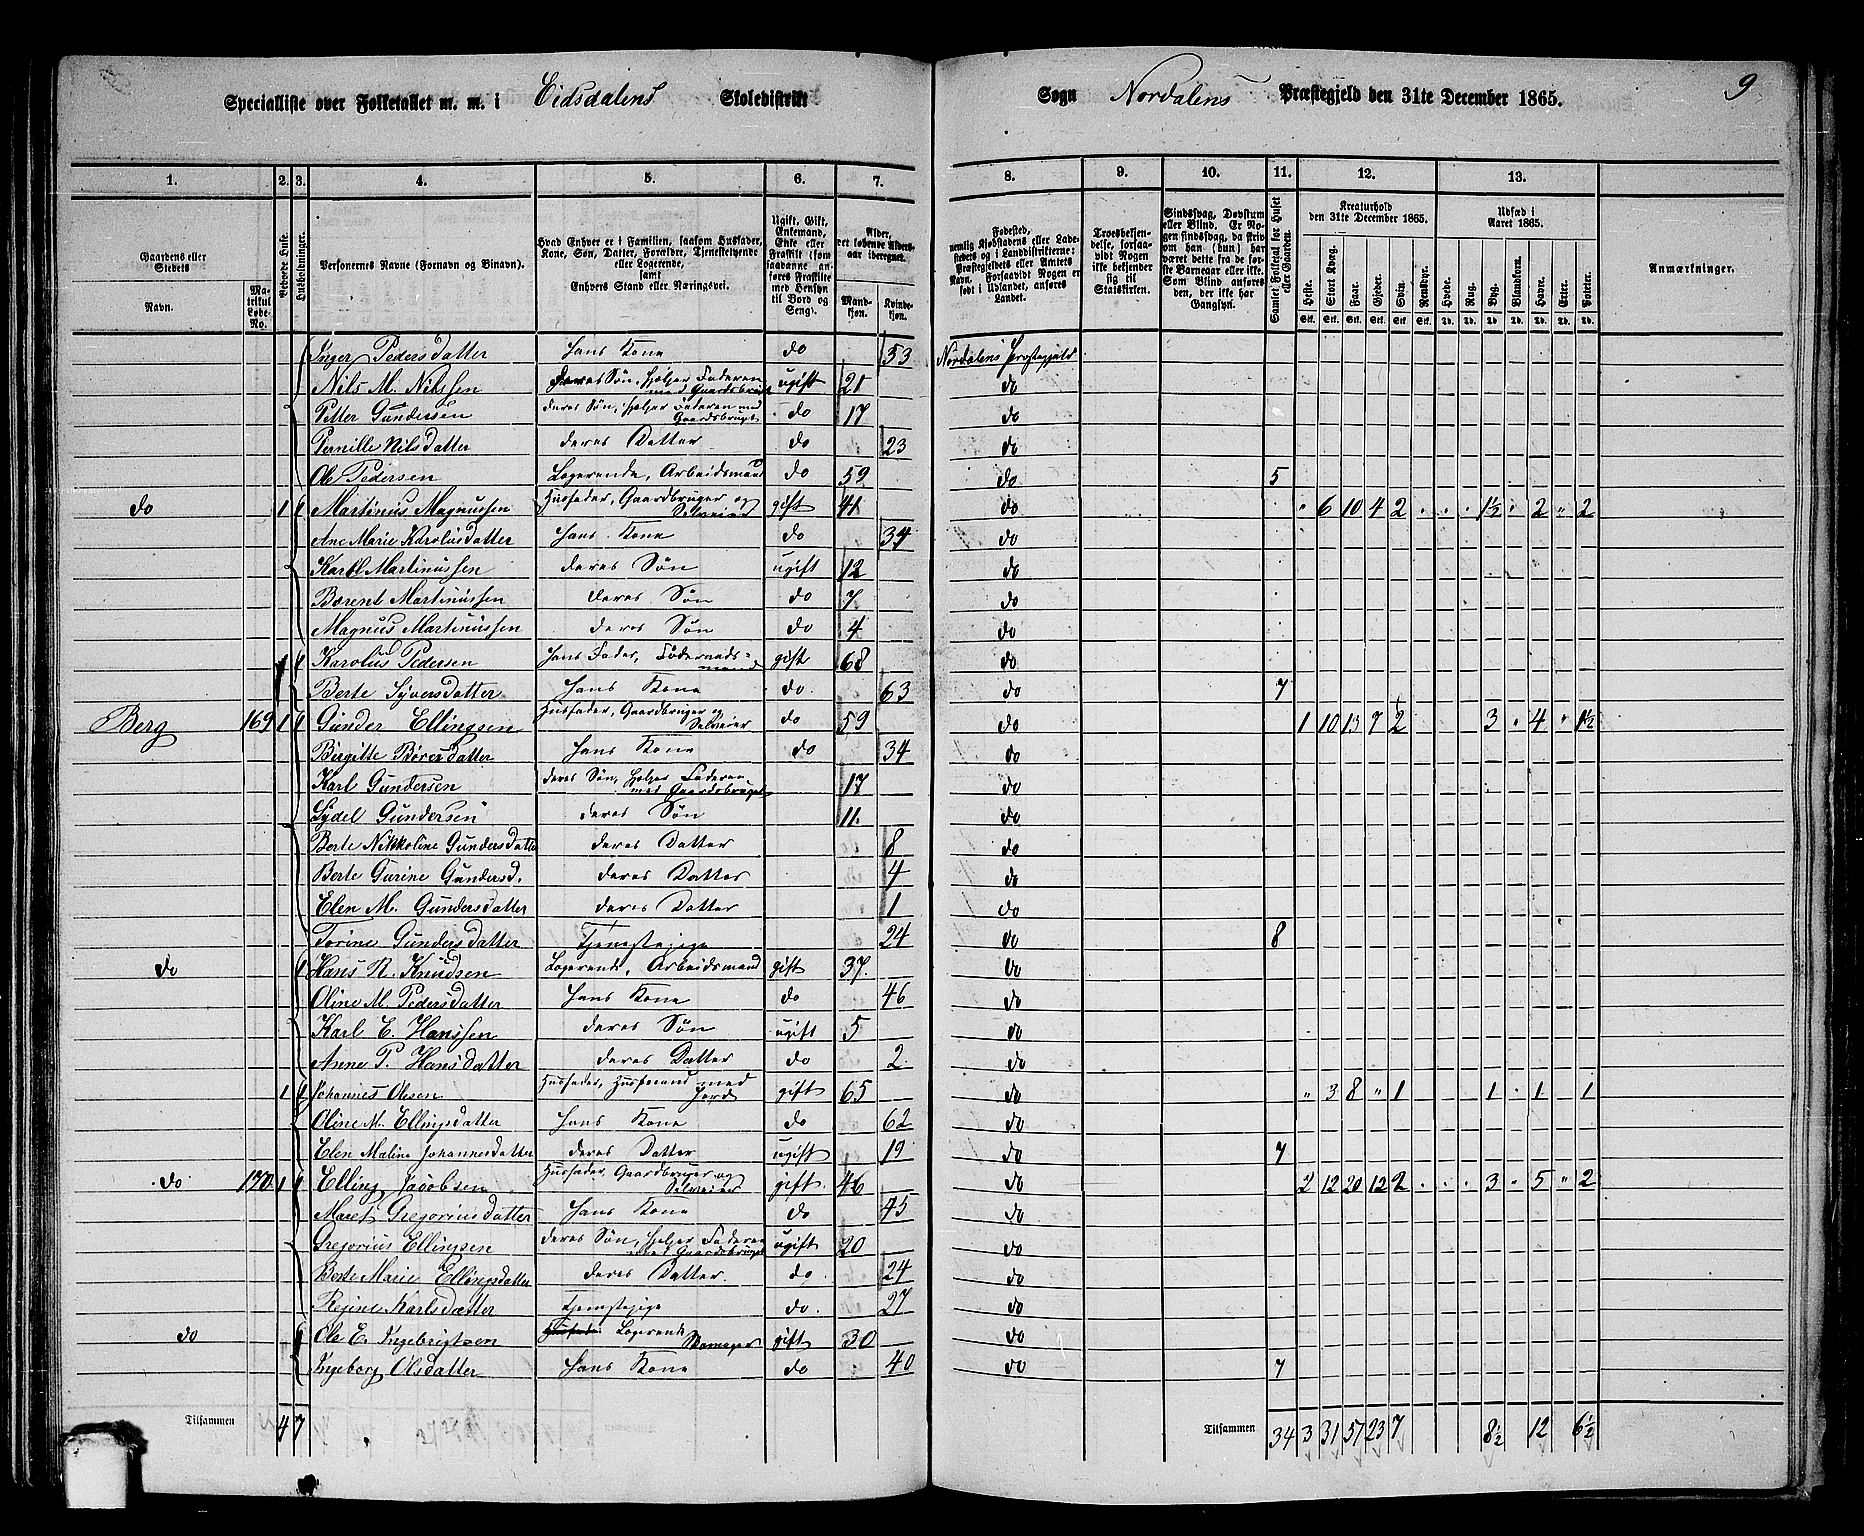 Specialliste over Folketallet m. m. i Eidsdalens Skoledistrikt Sogn Nordalens Præstegjeld den 31te December 1865. 9
1. 2. 3. 4. 5. 6. 7. 8. 9. 10. 11. 12. 13.
Gaardens eller Stedets
Navn.
Matrikul Løbe-No.
Bebyede Huse.
Husholdninger.
Personernes Navne (Fornavn og Binavn).
Hvad Enhver er i Familien, saasom Husfader, Kone, Søn, Datter, Forældre, Tjenestetyende eller Logerende, samt Enhvers Stand eller Næringsvei.
Ugift, Gift, Enkemand, Enke eller Fraskilt (som saadanne anføres Fraskilte med Hensyn til Bord og Seng).
Alder, det løbende Aldersaar iberegnet.
Mandkjøn.
Kvindekjøn.
Fødested, nemlig Kjøbstadens eller Ladestedets og i Landdistrikterne: Præstegjeldets eller Amtets Navn. Forsaavidt Nogen er født i Udlandet, anføres Landet.
Troesbekjendelse, forsaavidt Nogen ikke bekjender sig til Statskirken.
Sindssvag, Døvstum eller Blind. Er Nogen sindssvag, da skrives om han (hun) har været dette fra de første Barneaar eller ikke. Som Blind anføres den, der ikke har Gangsyn.
Samlet Folketal for Huset eller Gaarden.
Kreaturhold den 31te December 1865.
Heste. Stort Kvæg. Faar. Gjeder. Sviin. Rensdyr.
Udsæd i Aaret 1865.
Hvede. Rug. Byg. Blandkorn. Havre. Erter. Poteter.
Anmærkninger.
Inger Pedersdatter hans Kone do 53 Nordalens Præstegjeld
Nils M. Nilssen deres Søn, hjelper Faderen med Gaardsbruget ugift 21 do
Petter Gundersen deres Søn, hjelper Faderen med Gaardsbruget do 17 do
Pernille Nilsdatter deres Datter do 23 do
Ole Pedersen Logerende, Arbeidsmand do 59 do 5
do 1 1 Martinus Magnussen Husfader, Gaardbruger og Selveier gift 41 do " 6 10 4 2 1½ 2 " 2
Ane Marie Karolusdatter hans Kone do 34 do
Karl Martinussen deres Søn ugift 12 do
Bærent Martinussen deres Søn do 7 do
Magnus Martinussen deres Søn do 4 do
1 1 Karolus Pedersen hans Fader, Føderaadsmand gift 68 do
Berte Syversdatter hans Kone do 63 do 7
Berg 169 1 1 Gunder Ellingsen Husfader, Gaardbruger og Selveier do 59 do 1 10 13 7 2 3 4 " 1½
Birgitte Børesdatter hans Kone do 34 do
Karl Gundersen deres Søn, hjelper Faderen med Gaardsbruget 17 do
Sydel Gundersen deres Søn 11 do
Berte Nikkoline Gundersdatter deres Datter 8 do
Berte Gurine Gundersd. deres Datter 4 do
Elen M. Gundersdatter deres Datter 1 do
Torine Gundersdatter Tjenestepige 24 do 8
do 1 Hans R. Knudsen Logerende, Arbeidsmand gift 37 do
Oline M. Pedersdatter hans Kone do 46 do
Karl E. Hanssen deres Søn ugift 5 do
Anne P. Hansdatter deres Datter do 2 do
1 1 Johannes Olesen Husfader, Husmand med Jord gift 65 do " 3 8 " 1 1 1 1
Oline M. Ellingsdatter hans Kone do 62 do
Elen Maline Johannesdatter deres Datter ugift 19 do 7
do 170 1 1 Elling Jacobsen Husfader, Gaardbruger og Selveier gift 46 do 2 12 20 12 2 3 5 " 2
Maret Gregoriusdatter hans Kone do 45 do
Gregorius Ellingsen deres Søn, hjelper Faderen med Gaardsbruget ugift 20 do
Berte Marie Ellingsdatter deres Datter do 24 do
Regine Karlsdatter Tjenestepige do 27 do
do 1 Ole E. Ingebrigtsen Logerende Skomager gift 30 do
Ingeborg Olsdatter hans Kone do 40 do 7
Tilsammen 4 7 Tilsammen 34 3 31 51 23 7 8½ 12 6½